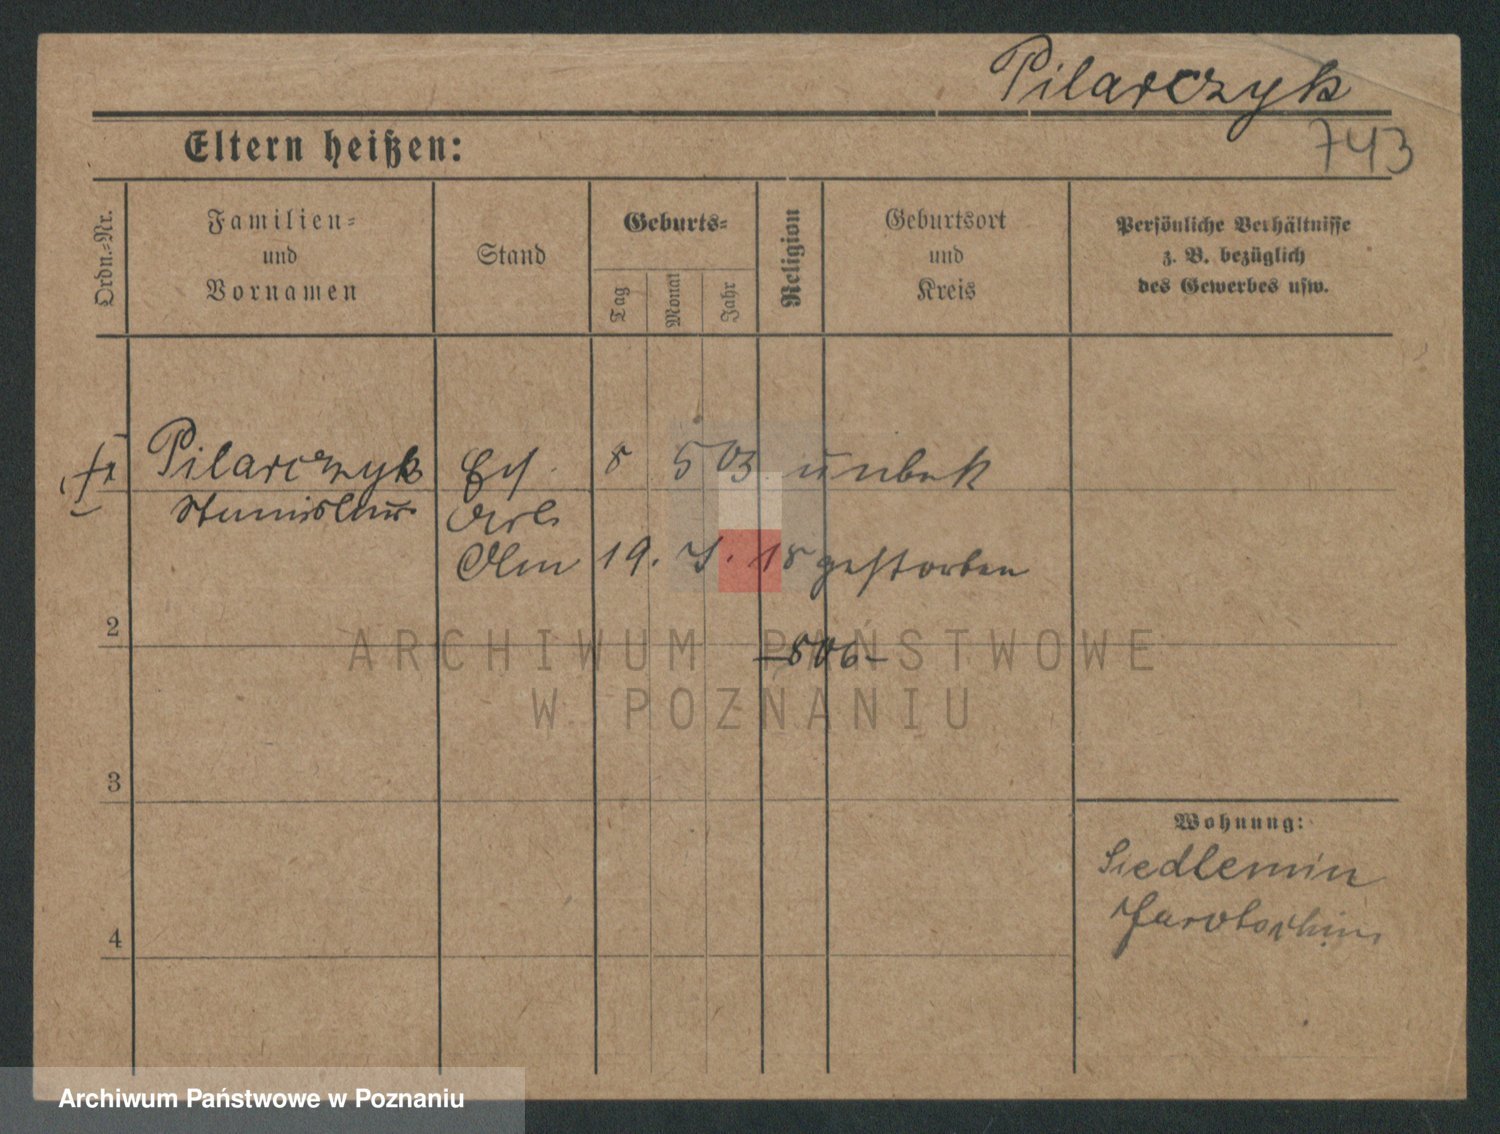 Pilarczyk
743
Eltern heißen:
Ordn.-Nr.
Familien-
und
Vornamen
Stand
Geburts-
Tag
Monat
Jahr
Religion
Geburtsort
und
Kreis
Persönliche Verhältnisse
z. B. bezüglich
des Gewerbes usw.
Pilarczyk 8 5 03 unbek
Stanislaus
19. 18 gestorben
2
ARCHIWUM PAŃSTWOWE
W POZNANIU
3
Wohnung:
Siedlemin
Jarotschin
4
Archiwum Państwowe w Poznaniu